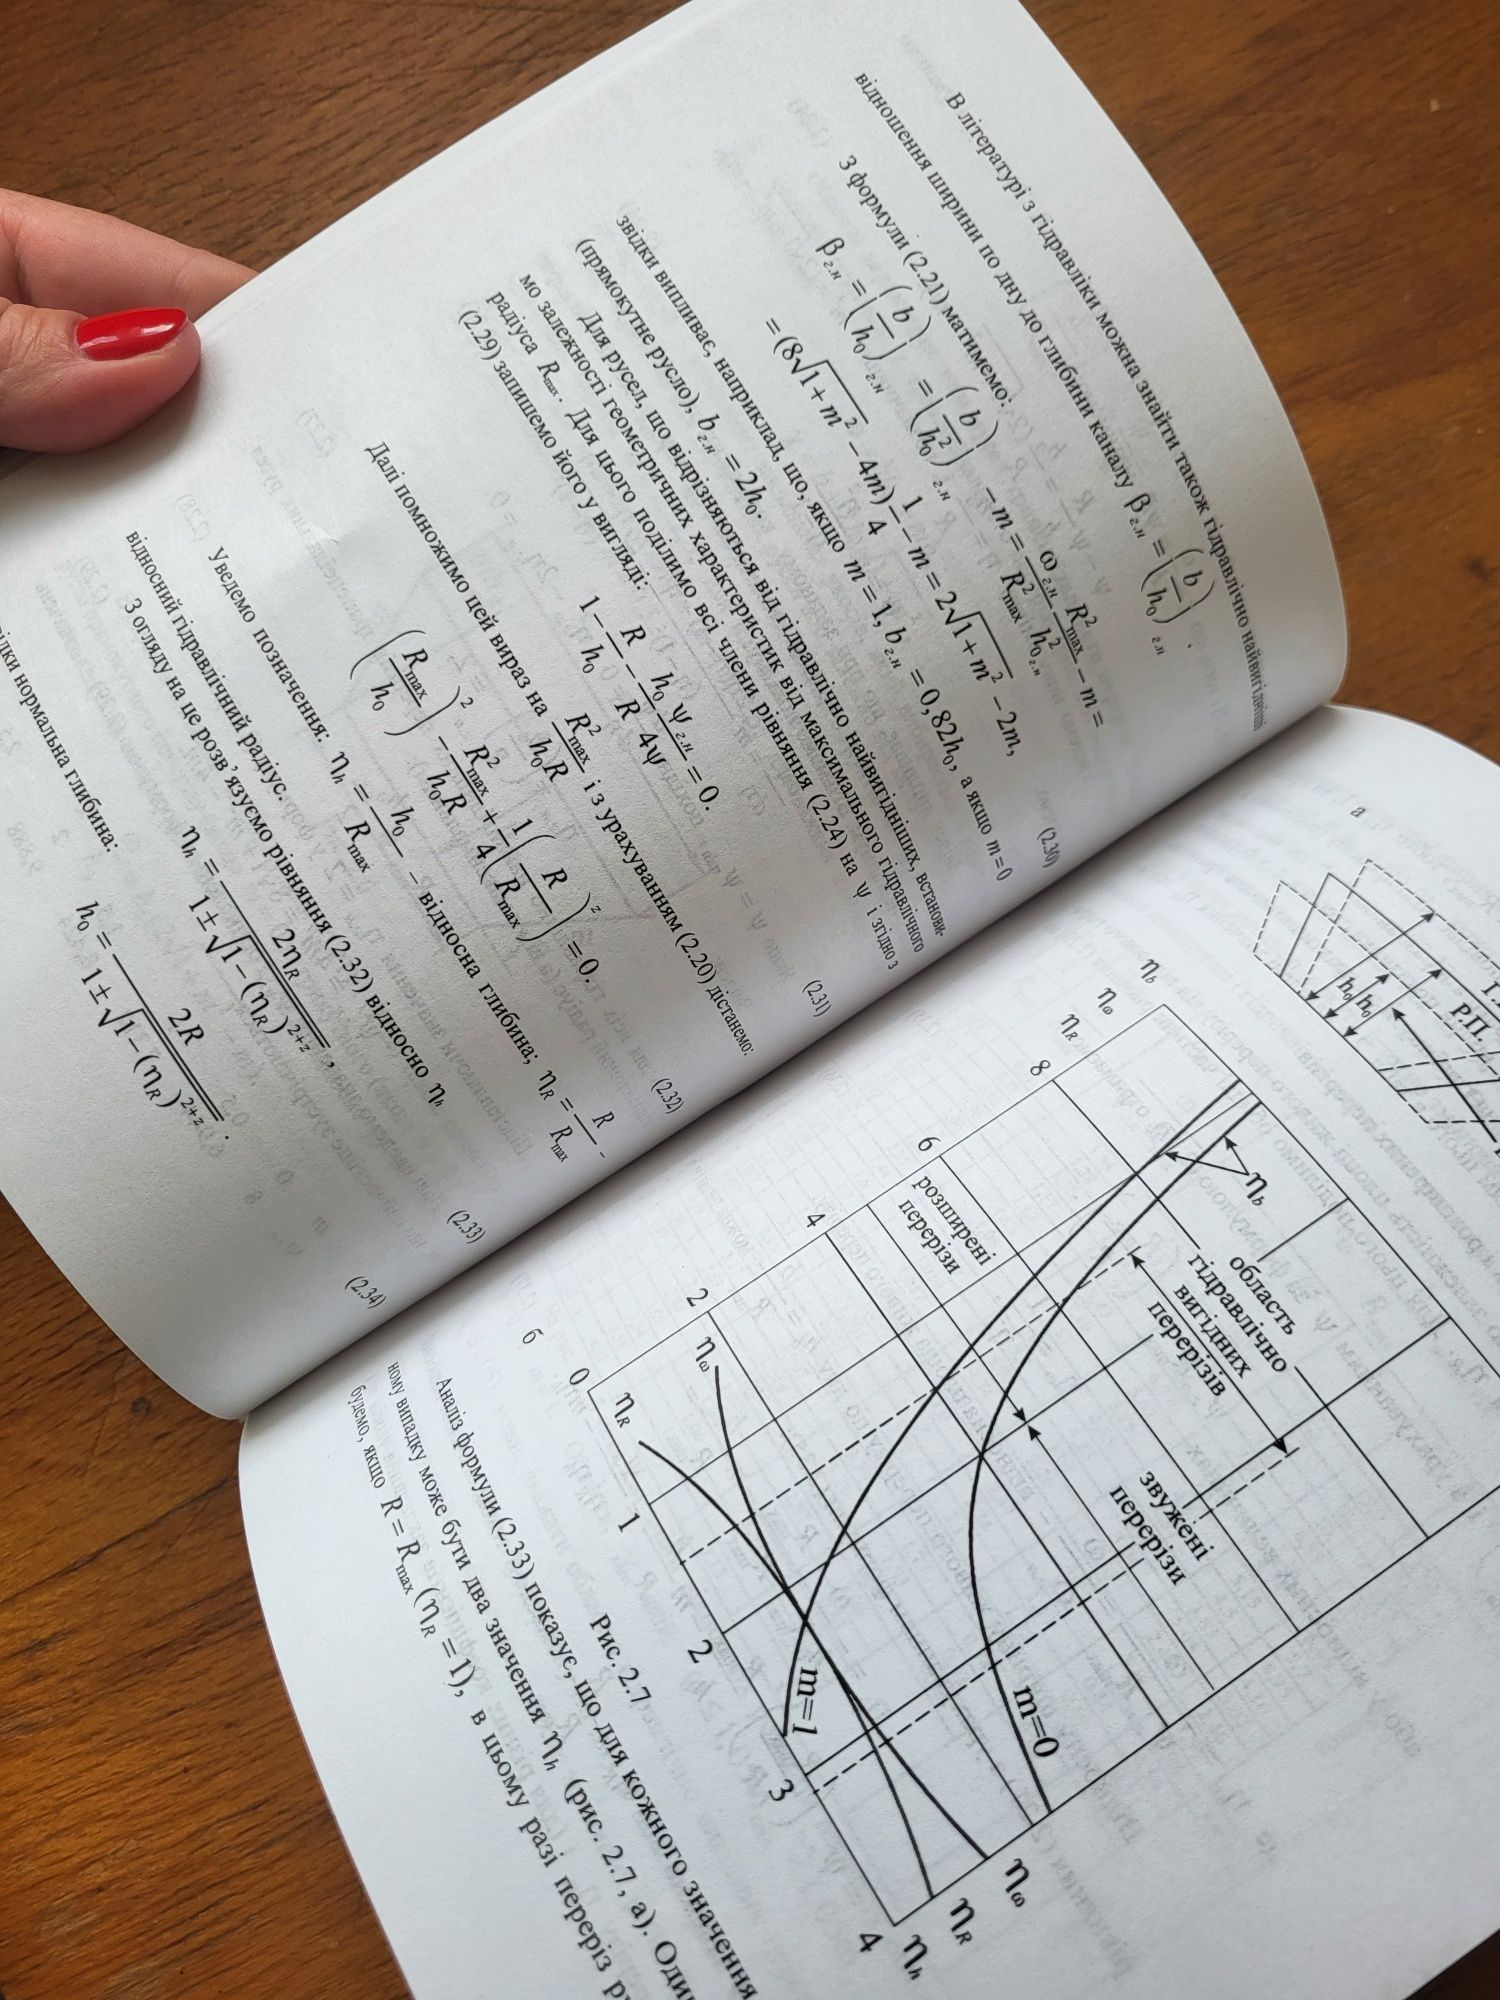 В літературі з гідравліки можна знайти також гідравлічно найвигідніші
відношення ширини по дну до глибини каналу β г.н = (b/h₀) г.н .
З формули (2.21) матимемо:
β г.н = (b/h₀) г.н = (b/h₀²) г.н − m = ω г.н/R²max · R²max/h²₀ г.н − m =
= (8√(1+m²) − 4m) 1/4 − m = 2√(1+m²) − 2m, (2.30)
звідки випливає, наприклад, що, якщо m = 1, b г.н = 0,82h₀, а якщо m = 0
(прямокутне русло), b г.н = 2h₀.
Для русел, що відрізняються від гідравлічно найвигідніших, встанови-
мо залежності геометричних характеристик від максимального гідравлічного
радіуса Rmax. Для цього поділимо всі члени рівняння (2.24) на ψ і згідно з
(2.29) запишемо його у вигляді:
1 − R/h₀ − h₀/R · ψ г.н/4ψ = 0. (2.31)
Далі помножимо цей вираз на R²max/h₀R і з урахуванням (2.20) дістанемо:
(Rmax/h₀)² − R²max/h₀R + 1/4 (R/Rmax)ᶻ = 0. (2.32)
Уведемо позначення: ηh = h₀/Rmax – відносна глибина; ηR = R/Rmax –
відносний гідравлічний радіус.
З огляду на це розв'язуємо рівняння (2.32) відносно ηh
ηh = 2ηR/(1±√(1−(ηR)²⁺ᶻ)) , (2.33)
нормальна глибина:
h₀ = 2R/(1±√(1−(ηR)²⁺ᶻ)) . (2.34)
а
h₀ h₀
Р.П.
б
ηb
ηω
ηR
8
6
4
2
0
1
2
3
4
ηh
ηR
ηω
ηω
ηR
m=1
m=0
ηb
розширені
перерізи
область
гідравлічно
вигідних
перерізів
звужені
перерізи
Рис. 2.7
Аналіз формули (2.33) показує, що для кожного значення
ному випадку може бути два значення ηh (рис. 2.7, а).
будемо, якщо R = Rmax (ηR = 1), в цьому разі переріз